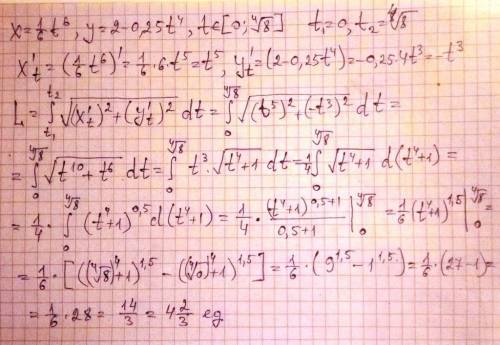 x = 1/6 t⁶, y = 2 - 0,25t⁴, t ∈ [0; ⁴√8] t₁ = 0, t₂ = ⁴√8
x'ₜ = (1/6 t⁶)' = 1/6 · 6 · t⁵ = t⁵, y'ₜ = (2 - 0,25t⁴) = -0,25 · 4t³ = -t³
L = ∫_{t₁}^{t₂} √((x'ₜ)² + (y'ₜ)²) dt = ∫_0^{⁴√8} √((t⁵)² + (-t³)²) dt =
= ∫_0^{⁴√8} √(t¹⁰ + t⁶) dt = ∫_0^{⁴√8} t³ · √(t⁴+1) dt = 1/4 ∫_0^{⁴√8} √(t⁴+1) d(t⁴+1) =
= 1/4 · ∫_0^{⁴√8} (t⁴+1)^{0,5} d(t⁴+1) = 1/4 · (t⁴+1)^{0,5+1}/(0,5+1) |_0^{⁴√8} = 1/6 (t⁴+1)^{1,5} |_0^{⁴√8} =
= 1/6 · [((⁴√8)⁴+1)^{1,5} - ((⁴√0)⁴+1)^{1,5}] = 1/6 · (9^{1,5} - 1^{1,5}) = 1/6 · (27-1) =
= 1/6 · 28 = 14/3 = 4 2/3 ед